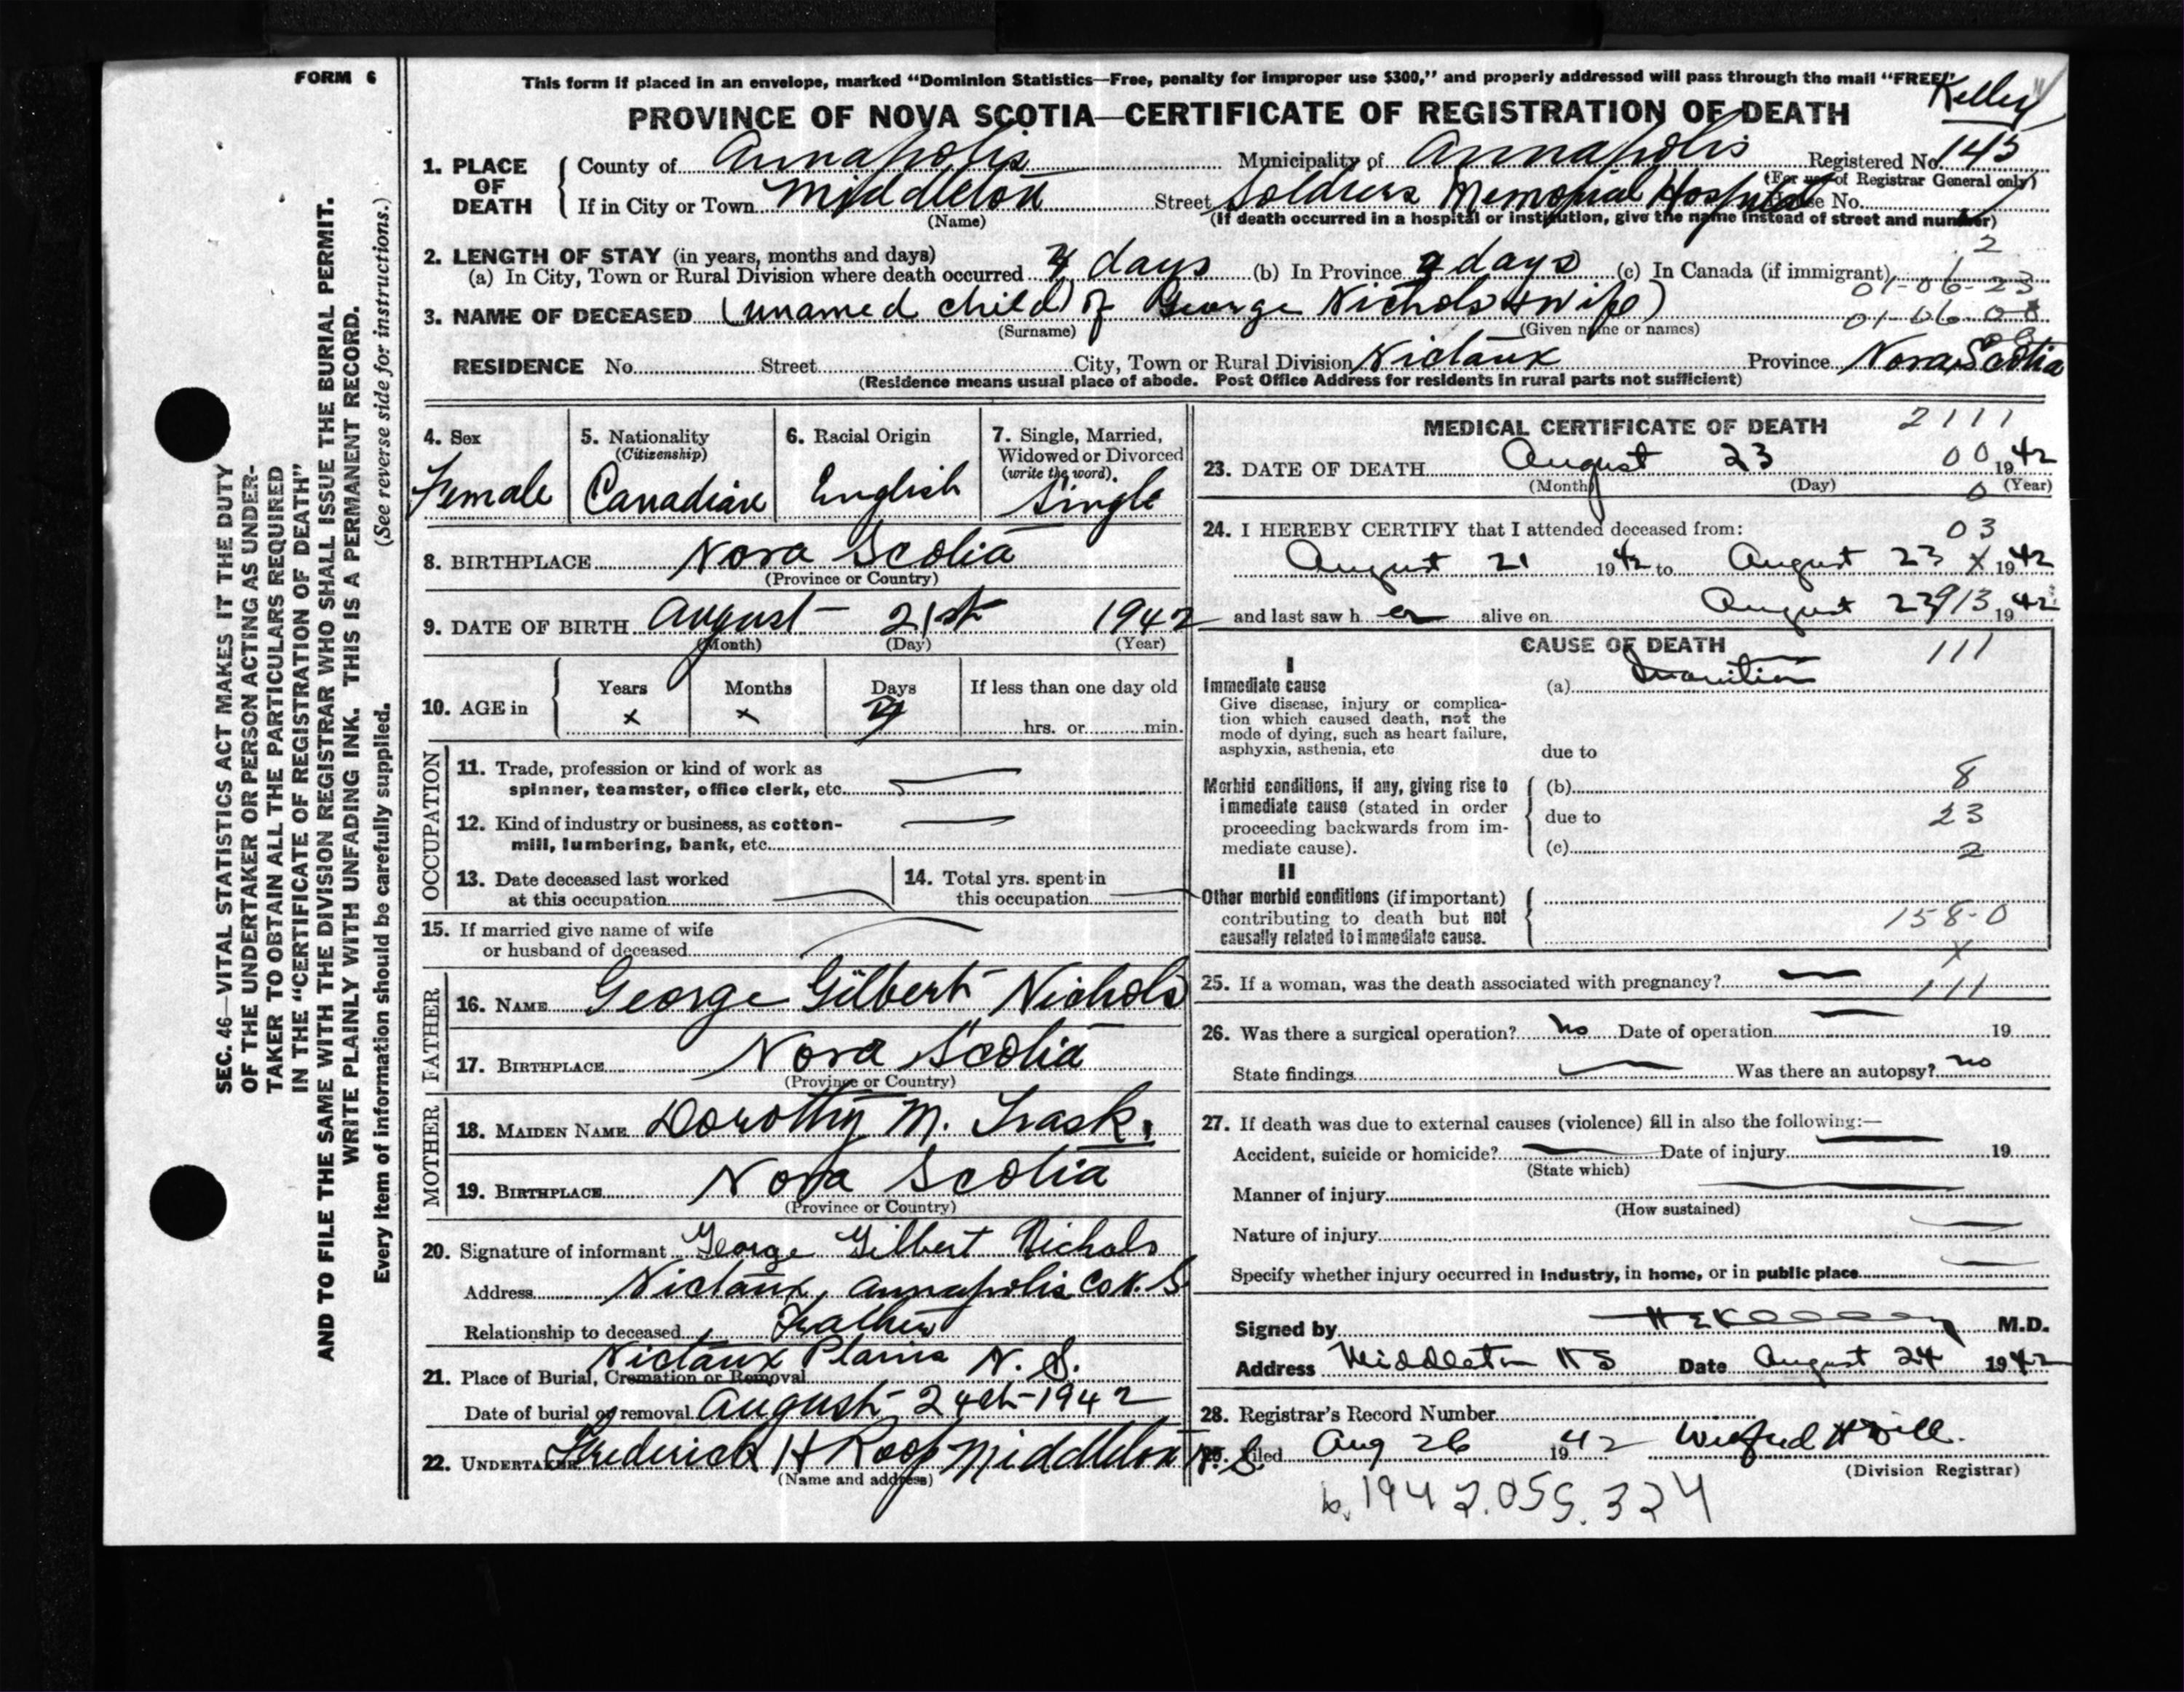 FORM 6
This form if placed in an envelope, marked "Dominion Statistics—Free, penalty for improper use $300," and properly addressed will pass through the mail "FREE."
Kelley
PROVINCE OF NOVA SCOTIA—CERTIFICATE OF REGISTRATION OF DEATH
1. PLACE OF DEATH
County of Annapolis Municipality of Annapolis Registered No. 145
(For use of Registrar General only)
If in City or Town Middleton Street Soldiers Memorial Hospital House No.
(Name) (If death occurred in a hospital or institution, give the name instead of street and number)
2
2. LENGTH OF STAY (in years, months and days)
(a) In City, Town or Rural Division where death occurred days (b) In Province days (c) In Canada (if immigrant)
01-06-23
3. NAME OF DECEASED (unamed child) of George Nichols & wife)
(Surname) (Given name or names)
01-06-0
RESIDENCE No. Street City, Town or Rural Division Nictaux Province Nova Scotia
(Residence means usual place of abode. Post Office Address for residents in rural parts not sufficient)
4. Sex
Female
5. Nationality
(Citizenship)
Canadian
6. Racial Origin
English
7. Single, Married,
Widowed or Divorced
(write the word)
Single
8. BIRTHPLACE Nova Scotia
(Province or Country)
9. DATE OF BIRTH August 21st 1942
(Month) (Day) (Year)
10. AGE in
Years Months Days If less than one day old
x x hrs. or min.
OCCUPATION
11. Trade, profession or kind of work as
spinner, teamster, office clerk, etc.
12. Kind of industry or business, as cotton-
mill, lumbering, bank, etc.
13. Date deceased last worked
at this occupation
14. Total yrs. spent in
this occupation
15. If married give name of wife
or husband of deceased
FATHER
16. NAME George Gilbert Nichols
17. BIRTHPLACE Nova Scotia
(Province or Country)
MOTHER
18. MAIDEN NAME Dorothy M. Trask.
19. BIRTHPLACE Nova Scotia
(Province or Country)
20. Signature of informant George Gilbert Nichols
Address Nictaux, Annapolis Co N. S
Relationship to deceased Father
21. Place of Burial, Cremation or Removal Nictaux Plains N. S.
Date of burial or removal August 24th 1942
22. UNDERTAKER Frederick H Roop Middleton N. S.
(Name and address)
MEDICAL CERTIFICATE OF DEATH
2111
23. DATE OF DEATH August 23 00 1942
(Month) (Day) (Year)
0
24. I HEREBY CERTIFY that I attended deceased from:
03
August 21 1942 to August 23 x 1942
and last saw her alive on August 23 913 1942
CAUSE OF DEATH
111
I
Immediate cause
Give disease, injury or complica-
tion which caused death, not the
mode of dying, such as heart failure,
asphyxia, asthenia, etc
(a) Inanition
due to
Morbid conditions, if any, giving rise to
immediate cause (stated in order
proceeding backwards from im-
mediate cause).
(b) 8
due to 23
(c) 2
II
Other morbid conditions (if important)
contributing to death but not
causally related to immediate cause.
158-0
x
25. If a woman, was the death associated with pregnancy?
111
26. Was there a surgical operation? no Date of operation 19
State findings Was there an autopsy? no
27. If death was due to external causes (violence) fill in also the following:—
Accident, suicide or homicide? Date of injury 19
(State which)
Manner of injury
(How sustained)
Nature of injury
Specify whether injury occurred in industry, in home, or in public place
Signed by H E Kelley M.D.
Address Middleton N S Date August 24 1942
28. Registrar's Record Number
29. Filed Aug 26 1942
(Division Registrar)
b. 1942.055.324
SEC. 46—VITAL STATISTICS ACT MAKES IT THE DUTY
OF THE UNDERTAKER OR PERSON ACTING AS UNDER-
TAKER TO OBTAIN ALL THE PARTICULARS REQUIRED
IN THE "CERTIFICATE OF REGISTRATION OF DEATH"
AND TO FILE THE SAME WITH THE DIVISION REGISTRAR WHO SHALL ISSUE THE BURIAL PERMIT.
WRITE PLAINLY WITH UNFADING INK. THIS IS A PERMANENT RECORD.
Every item of information should be carefully supplied. (See reverse side for instructions.)